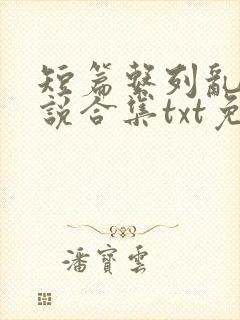 短篇繫列亂
說合集txt免
潘寶雲